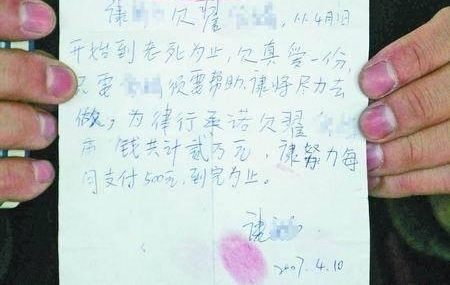 谏 欠翟 ，从4月1日
开始到老死为止，欠真爱一份，
只要 须要帮助，谏将尽力去
做，为律行承诺欠翟
币 钱共计贰万元，谏努力每
月支付500元，到完为止。
谏
2007.4.10